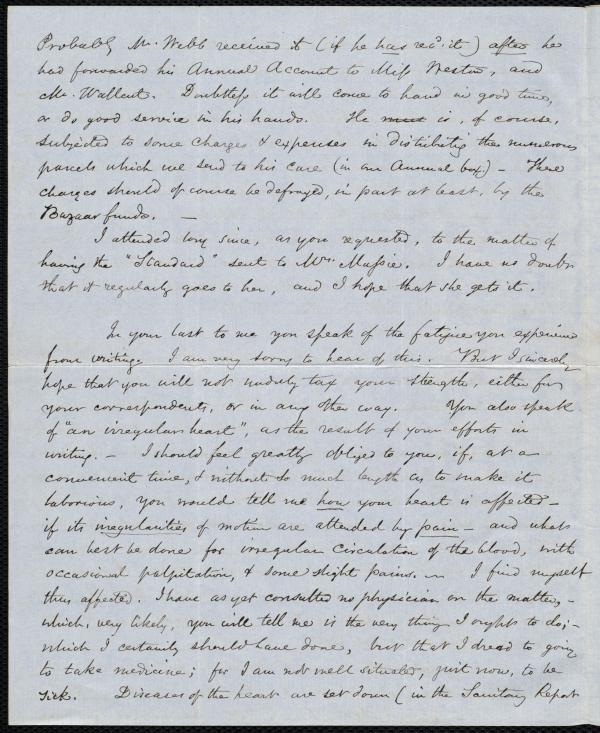 Probably Mr. Webb received it (if he has rec'd it) after he
had forwarded his Annual Account to Miss Weston, and
Mr. Wallcut. Doubtless it will come to hand in good time,
or do good service in his hands. He must is, of course,
subjected to some charges & expenses in distributing the numerous
parcels which we send to his care (in our Annual box) – These
charges should of course be defrayed, in part at least, by the
Bazaar funds. —
I attended long since, as you requested, to the matter of
having the "Standard" sent to Mrs. Massie. I have no doubt
that it regularly goes to her, and I hope that she gets it.
In your last to me you speak of the fatigue you experience
from writing. I am very sorry to hear of this. But I sincerely
hope that you will not unduly tax your strength, either for
your correspondents, or in any other way. You also speak
of "an irregular heart", as the result of your efforts in
writing. – I should feel greatly obliged to you, if, at a
convenient time, & without so much length as to make it
laborious, you would tell me how your heart is affected –
if its irregularities of motion are attended by pain – and what
can best be done for irregular circulation of the blood, with
occasional palpitation, & some slight pains. — I find myself
thus affected. I have as yet consulted no physician on the matter, –
which, very likely, you will tell me is the very thing I ought to do; –
which I certainly should have done, but that I dread to going
to take medicine; for I am not well situated, just now, to be
sick. Diseases of the heart are set down (in the Sanitary Report